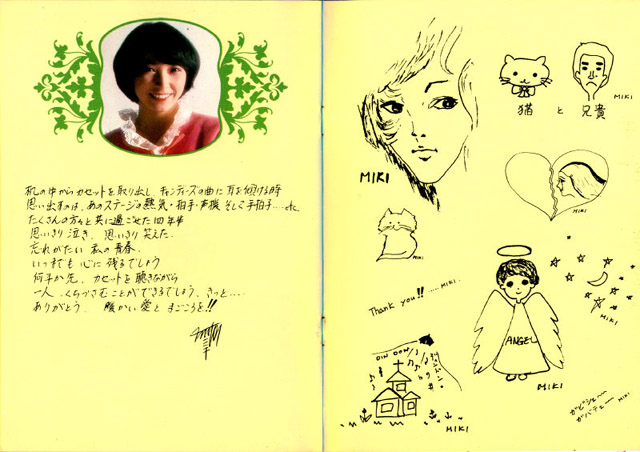 机の中からカセットを取り出し、キャンディーズの曲に耳を傾ける時
思い出すのは、あのステージの熱気・拍手・声援 そして手拍子....etc.
たくさんの方々と共に過ごせた四年半
思いきり泣き、思いきり笑えた
忘れがたい 私の青春、
いつまでも 心に 残るでしょう
何年か先、カセットを聴きながら
一人、くちずさむことができるでしょう、きっと....
ありがとう、暖かい愛と まごころを!!
MIKI
MIKI
猫 と 兄貴
MIKI
MIKI
Thank you!! ....MIKI.
ANGEL
MIKI
MIKI
DIN DON
MIKI
MIKI